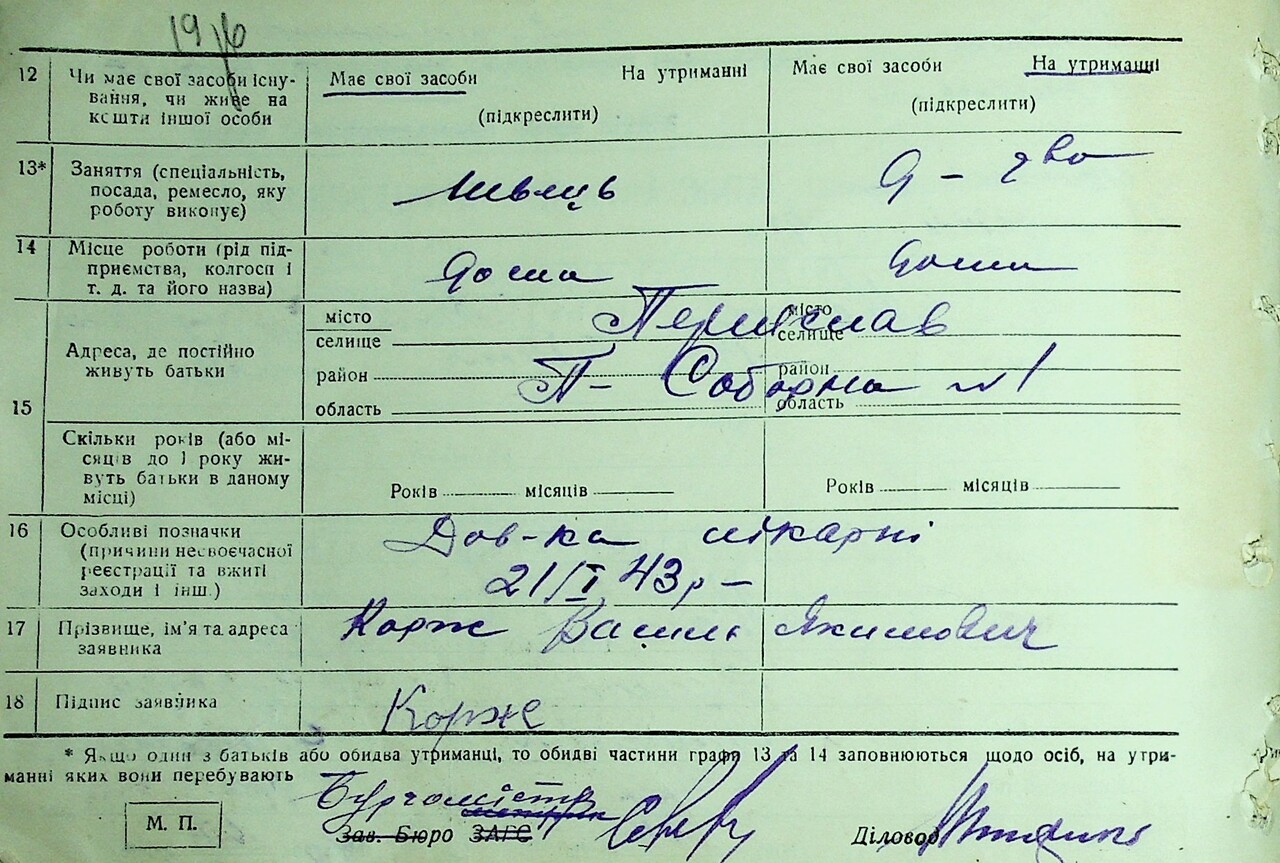 1916
12 Чи має свої засоби існу- Має свої засоби На утриманні Має свої засоби На утриманні
вання, чи живе на
кошти іншої особи (підкреслити) (підкреслити)
13* Заняття (спеціальність,
посада, ремесло, яку Швець
роботу виконує)
14 Місце роботи (рід під-
приємства, колгосп і Дома Дома
т. д. та його назва)
місто Переяслав місто
селище селище
Адреса, де постійно
живуть батьки район П- Соборна №1 район
15 область область
Скільки років (або мі-
сяців до 1 року жи-
вуть батьки в даному Років місяців Років місяців
місці)
16 Особливі позначки Дов-ка лікарні
(причини несвоєчасної
реєстрації та вжиті 21/I 43р –
заходи і інш.)
17 Прізвище, ім'я та адреса Корж Василь Якимович
заявника
18 Підпис заявника Корж
* Якщо один з батьків або обидва утриманці, то обидві частини графи 13 та 14 заповнюються щодо осіб, на утри-
манні яких вони перебувають
Бургомістр
М. П. Зав. Бюро ЗАГС Діловод